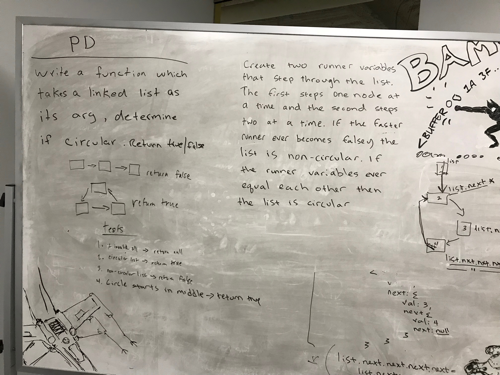 PD
Write a function which
takes a linked list as
its arg, determine
if circular. Return true/false
return false
return true
Tests
1. invalid
2. circular list → return true
3. non-circular list → return false
4. Circle starts in middle → return true
Create two runner variables
that step through the list.
The first steps one node at
a time and the second steps
two at a time. If the faster
runner ever becomes falsey the
list is non-circular. If
the runner variables ever
equal each other then
the list is circular
BAM
list.next
2
3
4
next: {
val: 3,
next {
val: 4
next: null
3 3 3
list.next.next.next.next=
list.next